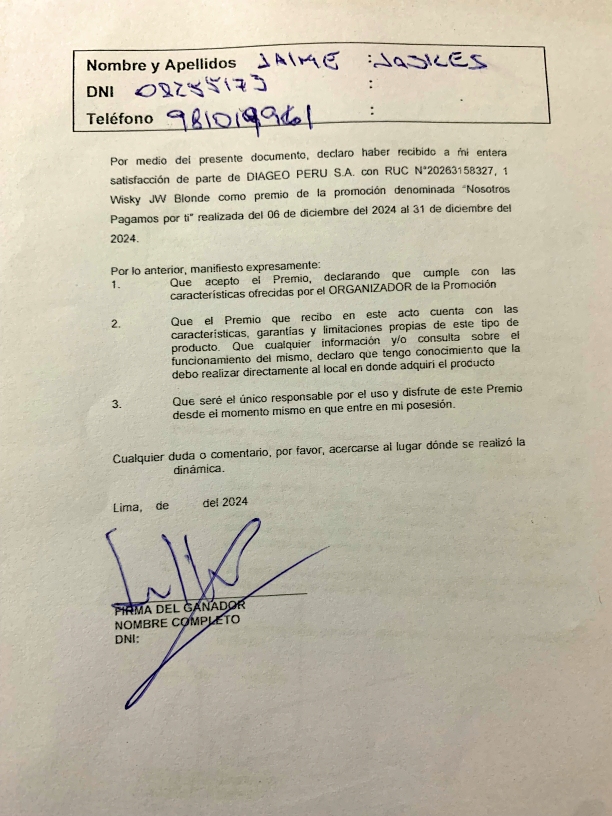 Nombre y Apellidos JAIME :
DNI :
Teléfono :
Por medio del presente documento, declaro haber recibido a mi entera
satisfacción de parte de DIAGEO PERU S.A. con RUC N°20263158327, 1
Wisky JW Blonde como premio de la promoción denominada "Nosotros
Pagamos por ti" realizada del 06 de diciembre del 2024 al 31 de diciembre del
2024.
Por lo anterior, manifiesto expresamente:
1. Que acepto el Premio, declarando que cumple con las
características ofrecidas por el ORGANIZADOR de la Promoción
2. Que el Premio que recibo en este acto cuenta con las
características, garantías y limitaciones propias de este tipo de
producto. Que cualquier información y/o consulta sobre el
funcionamiento del mismo, declaro que tengo conocimiento que la
debo realizar directamente al local en donde adquirí el producto
3. Que seré el único responsable por el uso y disfrute de este Premio
desde el momento mismo en que entre en mi posesión.
Cualquier duda o comentario, por favor, acercarse al lugar dónde se realizó la
dinámica.
Lima, de del 2024
FIRMA DEL GANADOR
NOMBRE COMPLETO
DNI: